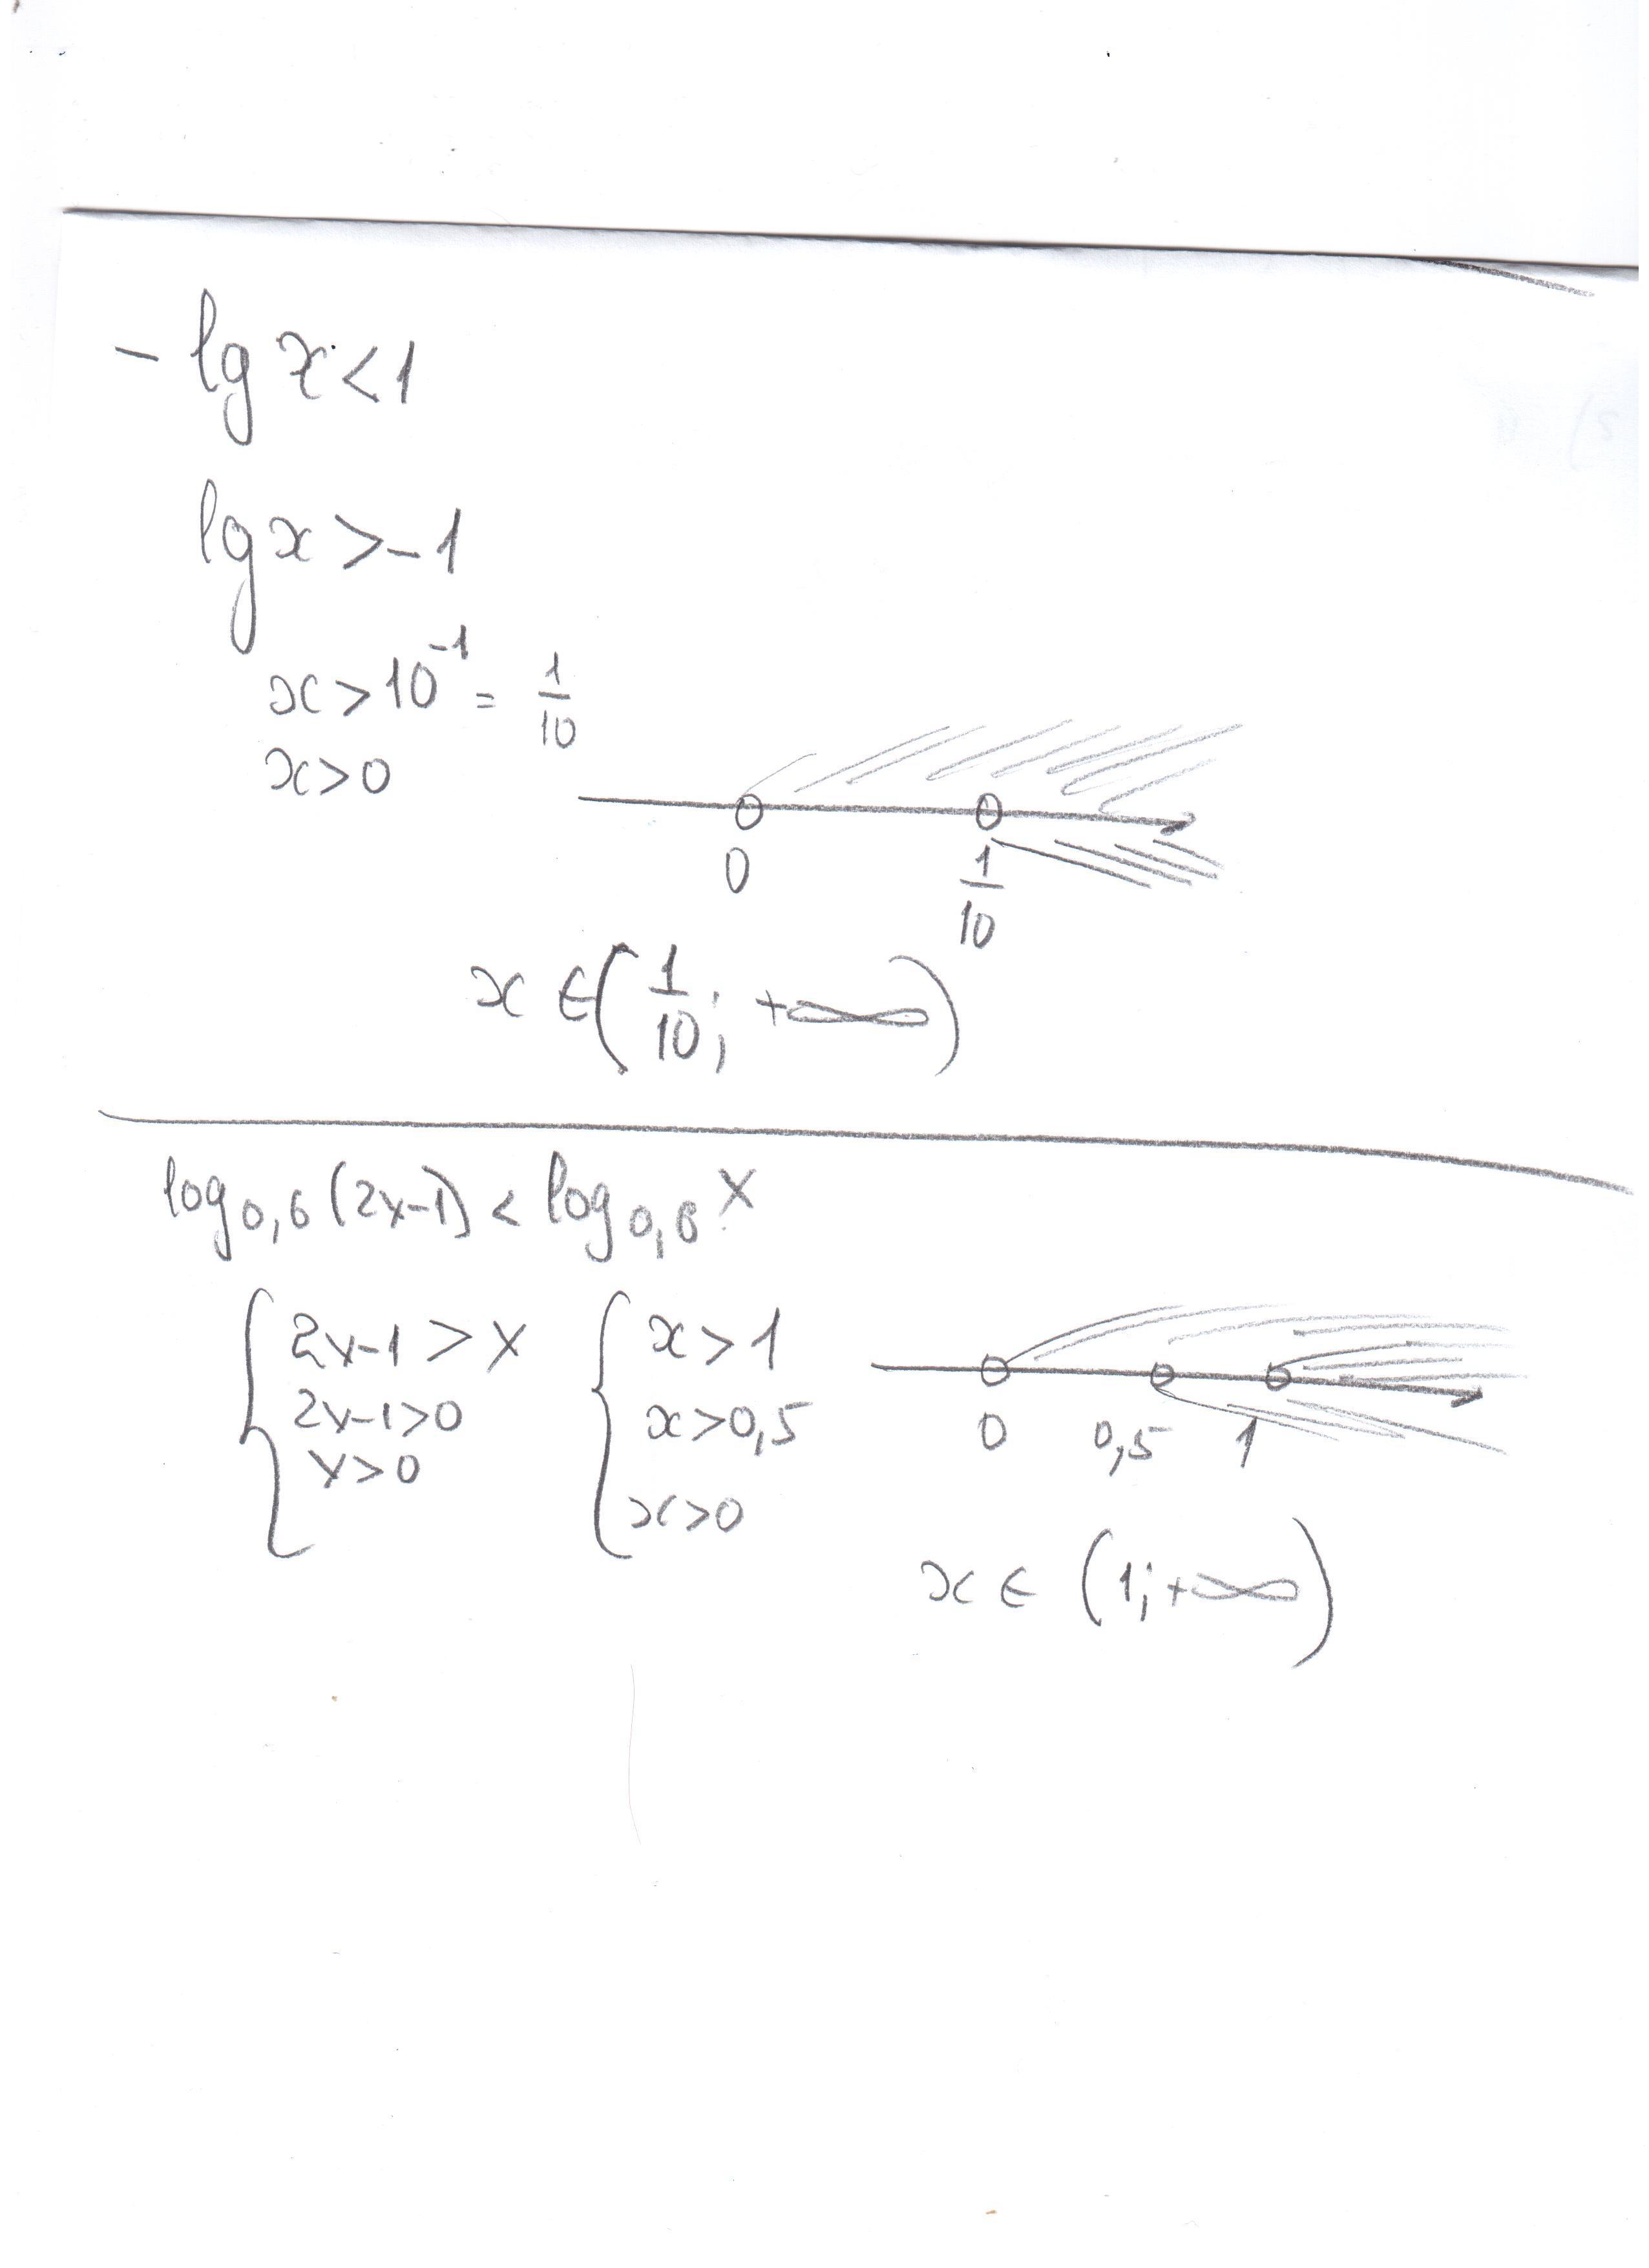 - lg x < 1
lg x > -1
x > 10⁻¹ = 1/10
x > 0
0 1/10
x ∈ (1/10; +∞)
log₀,₆ (2x-1) < log₀,₆ x
{ 2x-1 > x { x > 1
2x-1 > 0 x > 0,5
x > 0 x > 0
0 0,5 1
x ∈ (1; +∞)